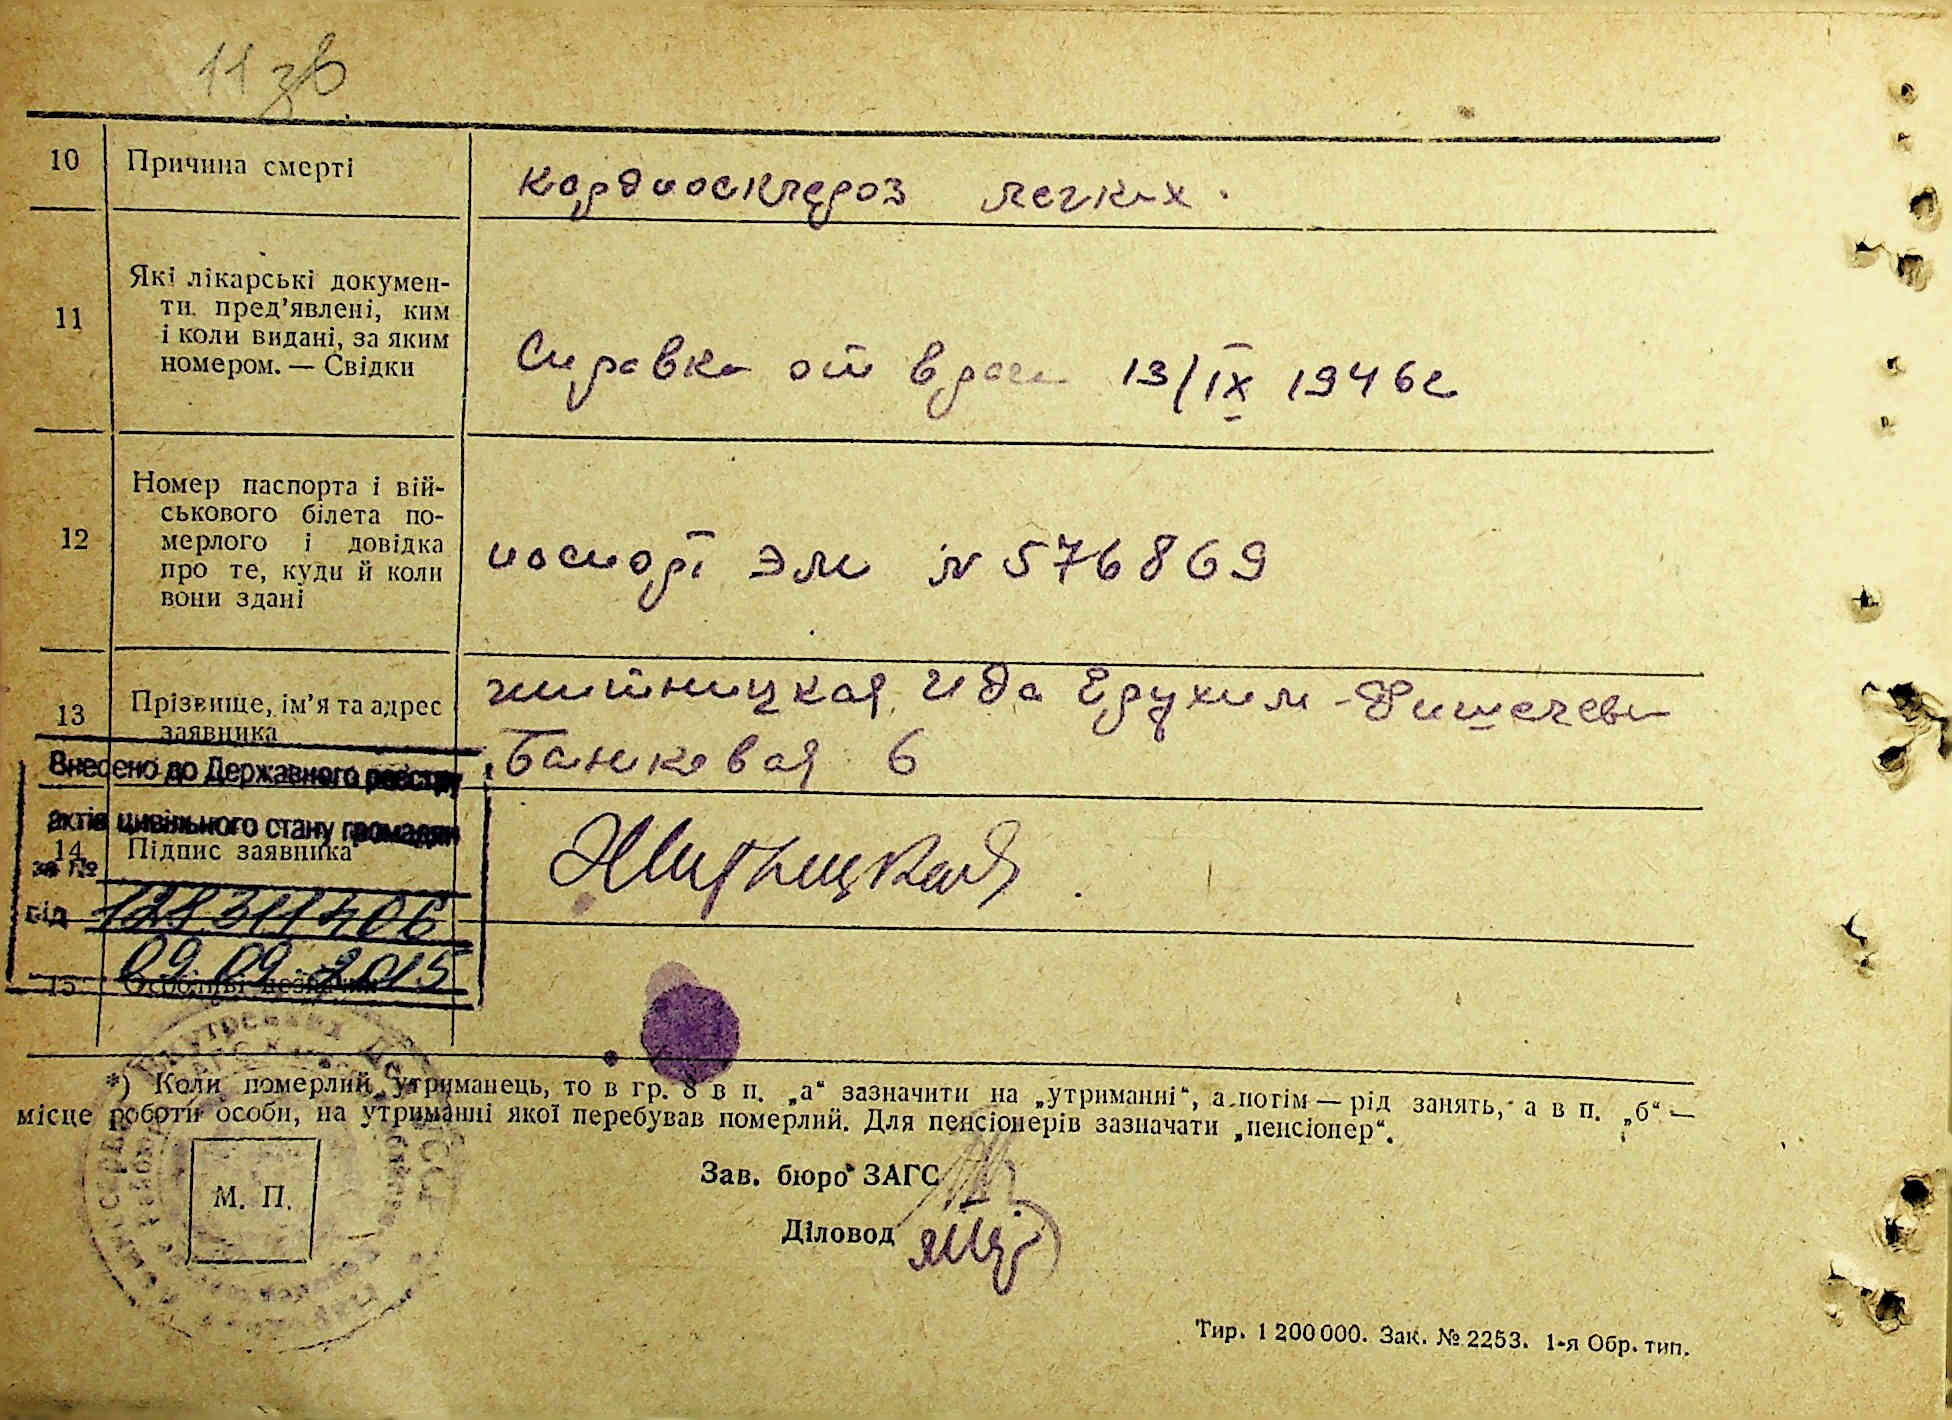 11 зв
10 Причина смерті
Кардиосклероз легких.
11 Які лікарські докумен-
ти пред’явлені, ким
і коли видані, за яким
номером. — Свідки
Справка от врача 13/IX 1946 г
12 Номер паспорта і вій-
ськового білета по-
мерлого і довідка
про те, куди й коли
вони здані
паспорт ЭМ № 576869
13 Прізвище, ім’я та адрес
заявника
Житницкая Ида Ерухим-Фишелевн
Банковая 6
Внесено до Державного реєстру
актів цивільного стану громадян
14 Підпис заявника
Житницкая
за №
від 128311406
09.09.2015
15
*) Коли померлий утриманець, то в гр. 8 в п. „а“ зазначити на „утриманні“, а потім — рід занять, а в п. „б“ —
місце роботи особи, на утриманні якої перебував померлий. Для пенсіонерів зазначати „пенсіонер“.
М. П.
Зав. бюро ЗАГС
Діловод
Тир. 1 200 000. Зак. № 2253. 1-я Обр. тип.